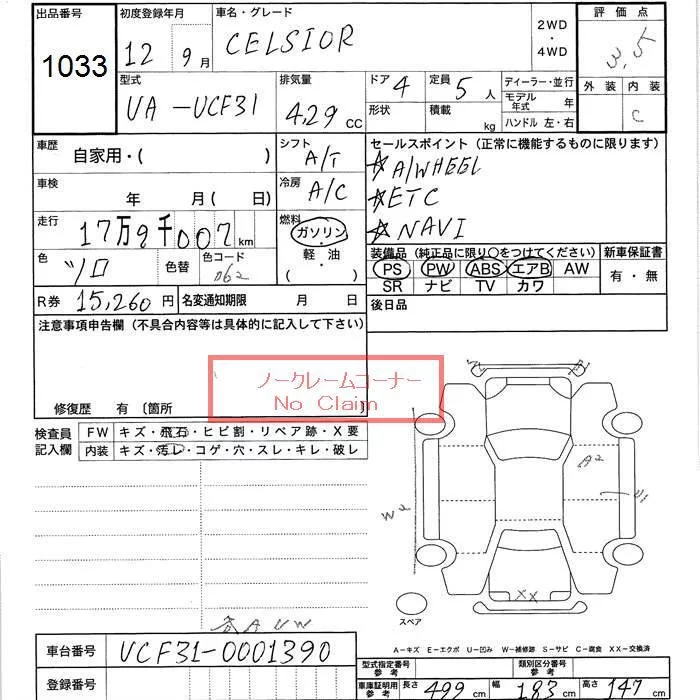 出品番号 初度登録年月 車名・グレード 2WD・4WD 評価点
1033 12 9月 CELSIOR 3.5
型式 排気量 ドア 4 定員 5人 ディーラー・並行 外装 内装
UA-UCF31 429 CC 形状 積載 kg モデル年式 年 C
ハンドル 左・右
車歴 自家用・( ) シフト A/T セールスポイント (正常に機能するものに限ります)
☆A/WHEEL
車検 年 月( 日) 冷房 A/C ☆ETC
☆NAVI
走行 17万9千007km 燃料 ガソリン・軽油 ( ) 装備品 (純正品に限り○をつけてください) 新車保証書
色 ソロ 色替 色コード 062 PS PW ABS エアB AW 有・無
SR ナビ TV カワ
R券 15,260円 名変通知期限 月 日 後日品
注意事項申告欄 (不具合内容等は具体的に記入して下さい)
ノークレームコーナー
No Claim
修復歴 有 〔箇所 〕
検査員記入欄 FW キズ・飛石・ヒビ割・リペア跡・X要
内装 キズ・汚レ・コゲ・穴・スレ・キレ・破レ
A2
U1
W2
XX
スペア
A-キズ E-エクボ U-凹み W-補修跡 S-サビ C-腐食 XX-交換済
車台番号 UCF31-0001390 型式指定番号 参考 類別区分番号 参考
登録番号 車庫証明用 参考 長さ 499 cm 幅 183 cm 高さ 147 cm